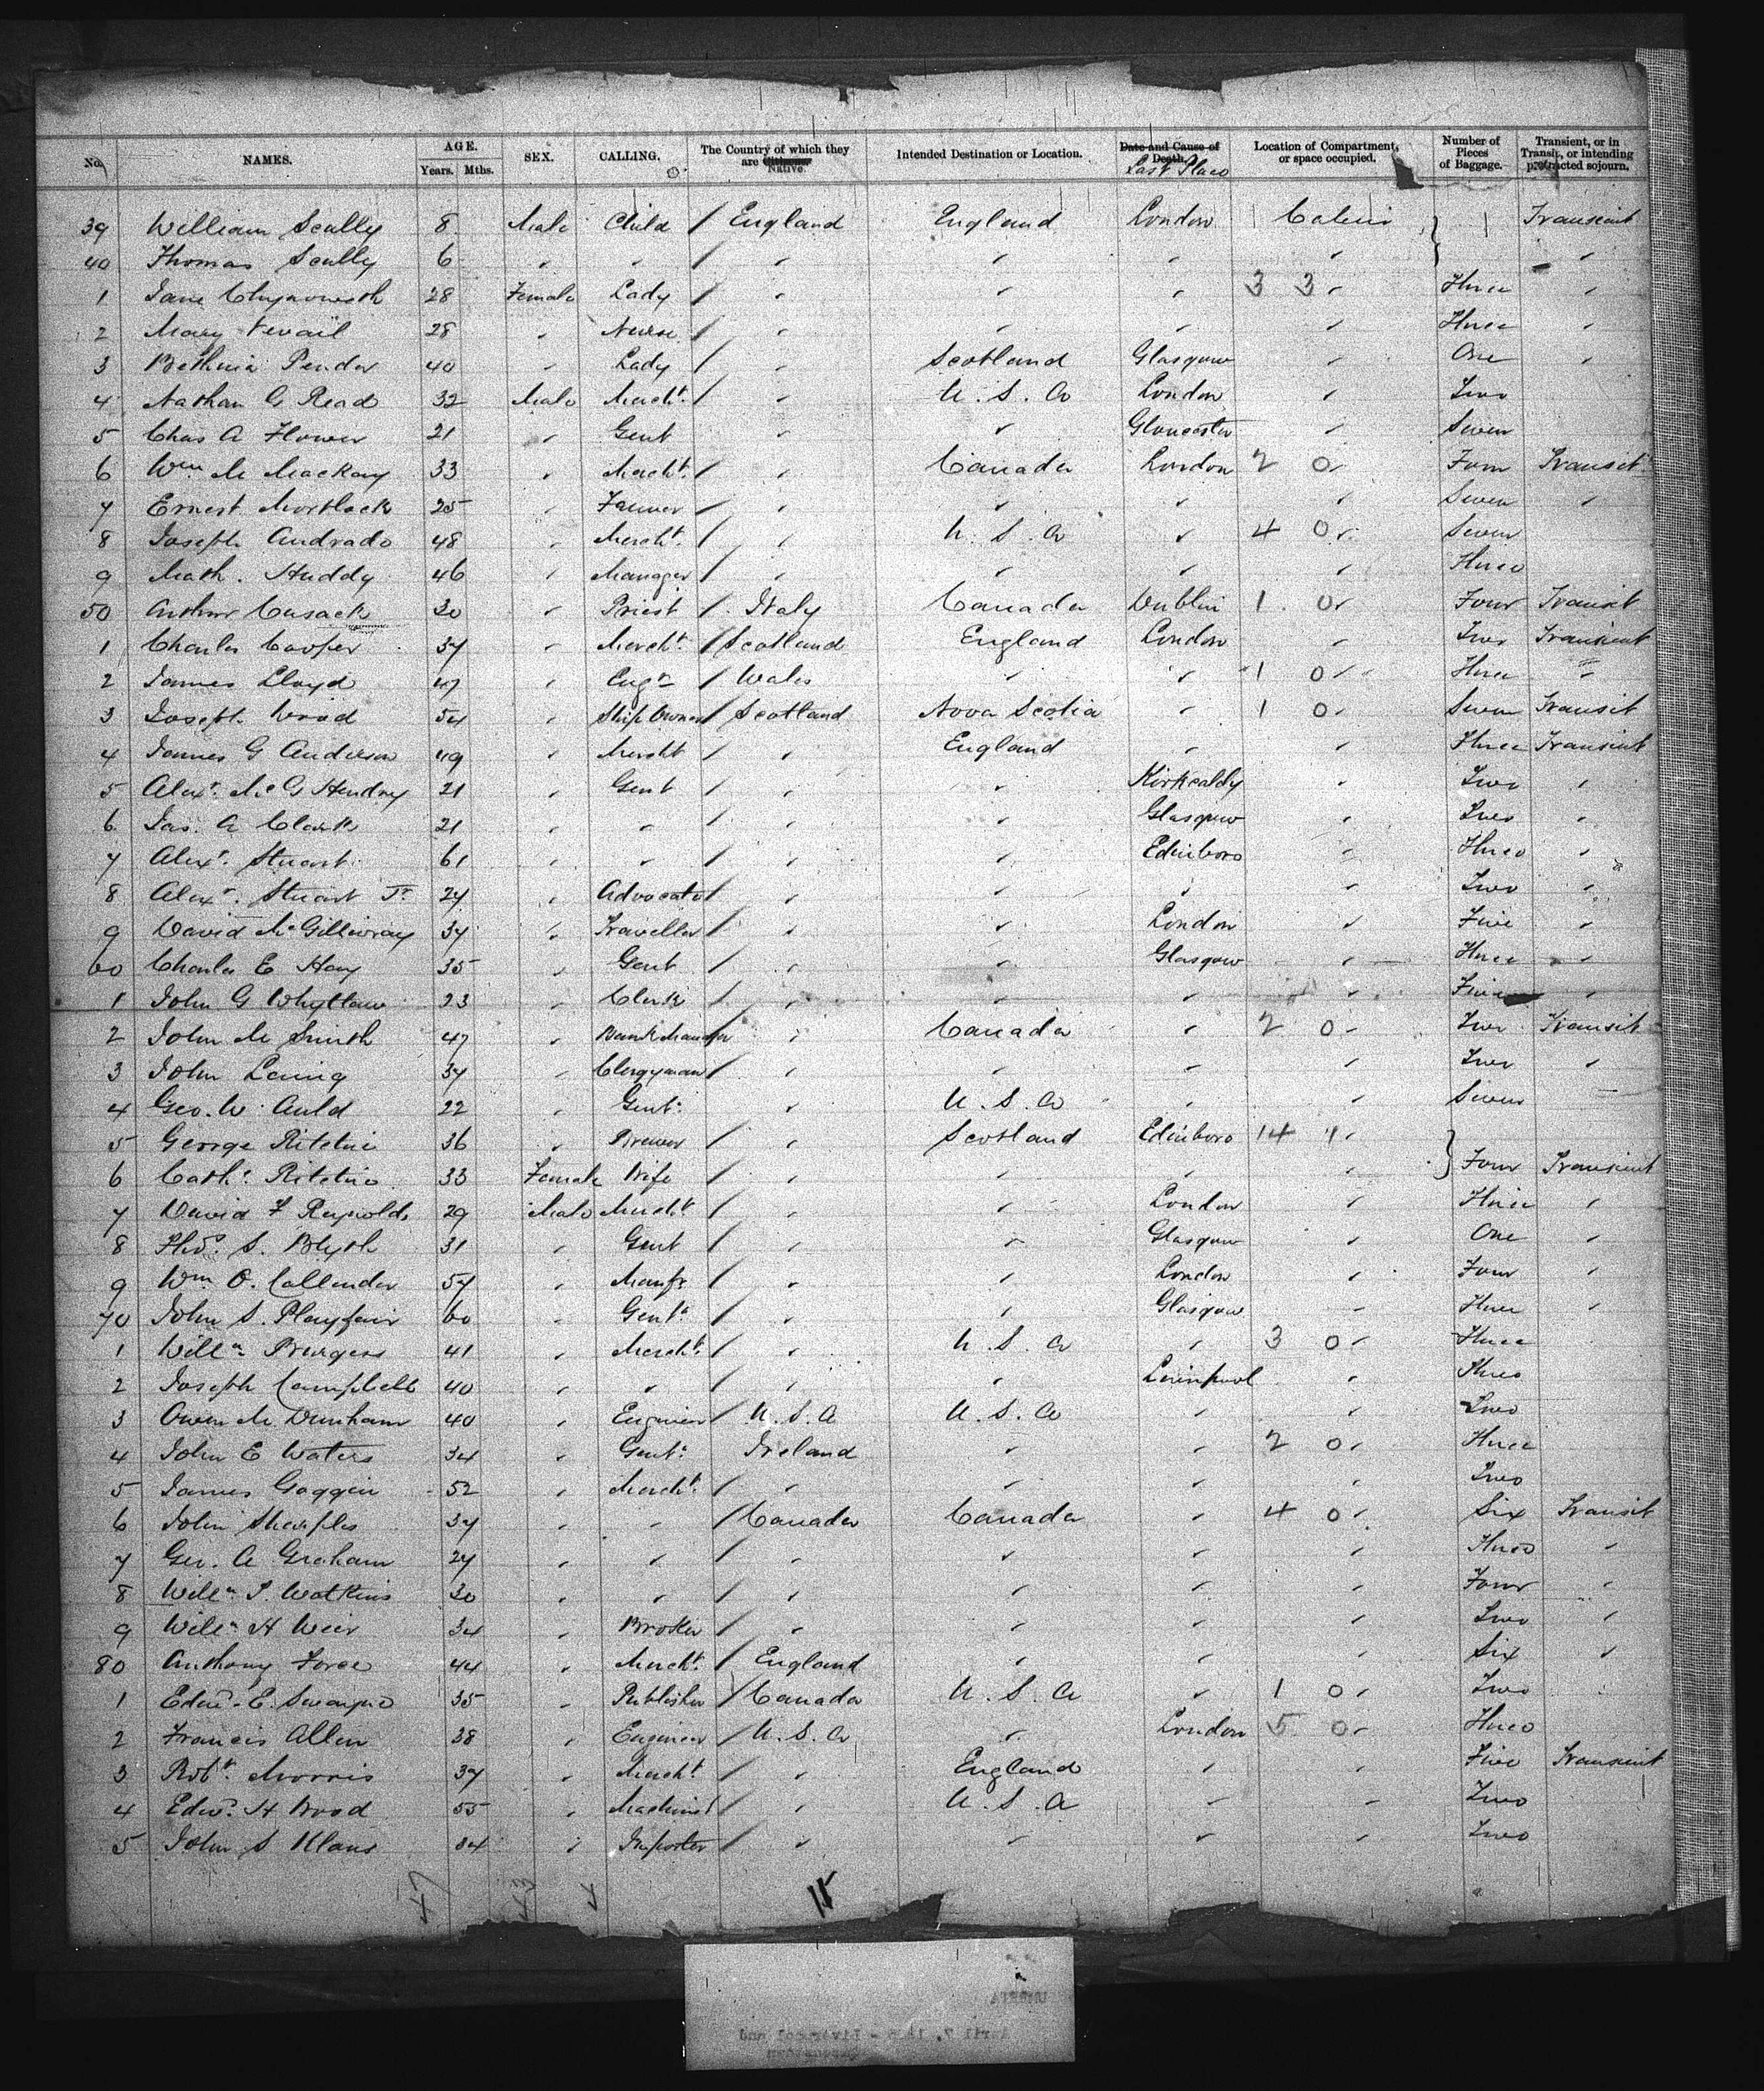 No. NAMES. AGE. Years. Mths. SEX. CALLING. The Country of which they are Native. Intended Destination or Location. Date and Cause of Death. Last Place Location of Compartment, or space occupied. Number of Pieces of Baggage. Transient, or in Transit, or intending protracted sojourn.
39 William Scully 8 Male Child / England England London Cabin } Transient
40 Thomas Scully 6 " " / " " " " "
1 Jane 28 Female Lady / " " " 3 3 " Three "
2 Mary 28 " Nurse / " " " " Three "
3 Bethnia Pender 40 " Lady / " Scotland Glasgow " One "
4 Nathan G Read 32 Male Mercht. / " U. S. A London " Two
5 Chas A Flower 21 " Gent " " Gloucester " Seven
6 Wm M Mackay 33 " Mercht. / " Canada London 2 0 " Four Transit
7 Ernest Mortlock 25 " Farmer / " " " " Seven "
8 Joseph Andrado 48 " Mercht. / " U. S. A " 4 0 " Seven
9 Math. Huddy 46 " Manager / " " " " Three
50 Arthur Cusack 30 " Priest / Italy Canada Dublin 1 0 " Four Transit
1 Charles Cooper 37 " Mercht. / Scotland England London " Two Transient
2 James Lloyd 47 " Engr / Wales " " 1 0 " Three "
3 Joseph Wood 54 " Ship Owner / Scotland Nova Scotia " 1 0 " Seven Transit
4 James G Anderson 49 " Mercht / " England " " Three Transient
5 Alexr. McG Hendry 21 " Gent / " " Kirkcaldy " Two "
6 Jas. A Clark 21 " " / " " Glasgow " Two "
7 Alexr. Stuart 61 " " / " " Edinboro " Three "
8 Alexr. Stuart Jr 24 " Advocate / " " " " Two "
9 David McGillivray 34 " Traveller / " " London " Five "
60 Charles E Hay 35 " Gent / " " Glasgow " Three "
1 John G Whytlaw 23 " Clerk / " " " " Five "
2 John M Smith 47 " Bank Manager " Canada " 2 0 " Two Transit
3 John Laing 34 " Clergyman / " " " " Two "
4 Geo. W Auld 22 " Gent. " U. S. A " " Seven
5 George Ritchie 36 " Brewer / " Scotland Edinboro 14 1 " }
6 Cath. Ritchie 33 Female Wife / " " " " } Four Transient
7 David F Reynolds 29 Male Mercht. / " " London " Three "
8 Thos. S. Blyth 31 " Gent / " " Glasgow " One "
9 Wm O. Callender 57 " Manfr. / " " London " Four "
70 John S. Playfair 60 " Gent. / " " Glasgow " Three "
1 Willm Burgess 41 " Mercht. / " U. S. A " 3 0 " Three
2 Joseph Campbell 40 " " / " " Liverpool " Three
3 Owen M Dunham 40 " Engineer / U. S. A U. S. A " " Two
4 John E Waters 34 " Gent. Ireland " " 2 0 " Three
5 James Goggin 52 " Mercht. / " " " " Two
6 John Sharples 37 " " / Canada Canada " 4 0 " Six Transit
7 Geo. A Graham 27 " " / " " " " Three "
8 Willm J. Watkins 30 " " / " " " " Four "
9 Willm H Weir 34 " Broker / " " " " Two "
80 Anthony Force 44 " Mercht. / England " " " Six "
1 35 " Publisher / Canada U. S. A " 1 0 " Two
2 Francis Allen 38 " Engineer / U. S. A " London 5 0 " Three
3 Robt. Morris 37 " Mercht. / " England " " Five Transient
4 Edwd. H Wood 55 " Machinist / " U. S. A " " Two
5 John S 34 " Importer / " " " " Two
47 43 4 11
UMBRIA